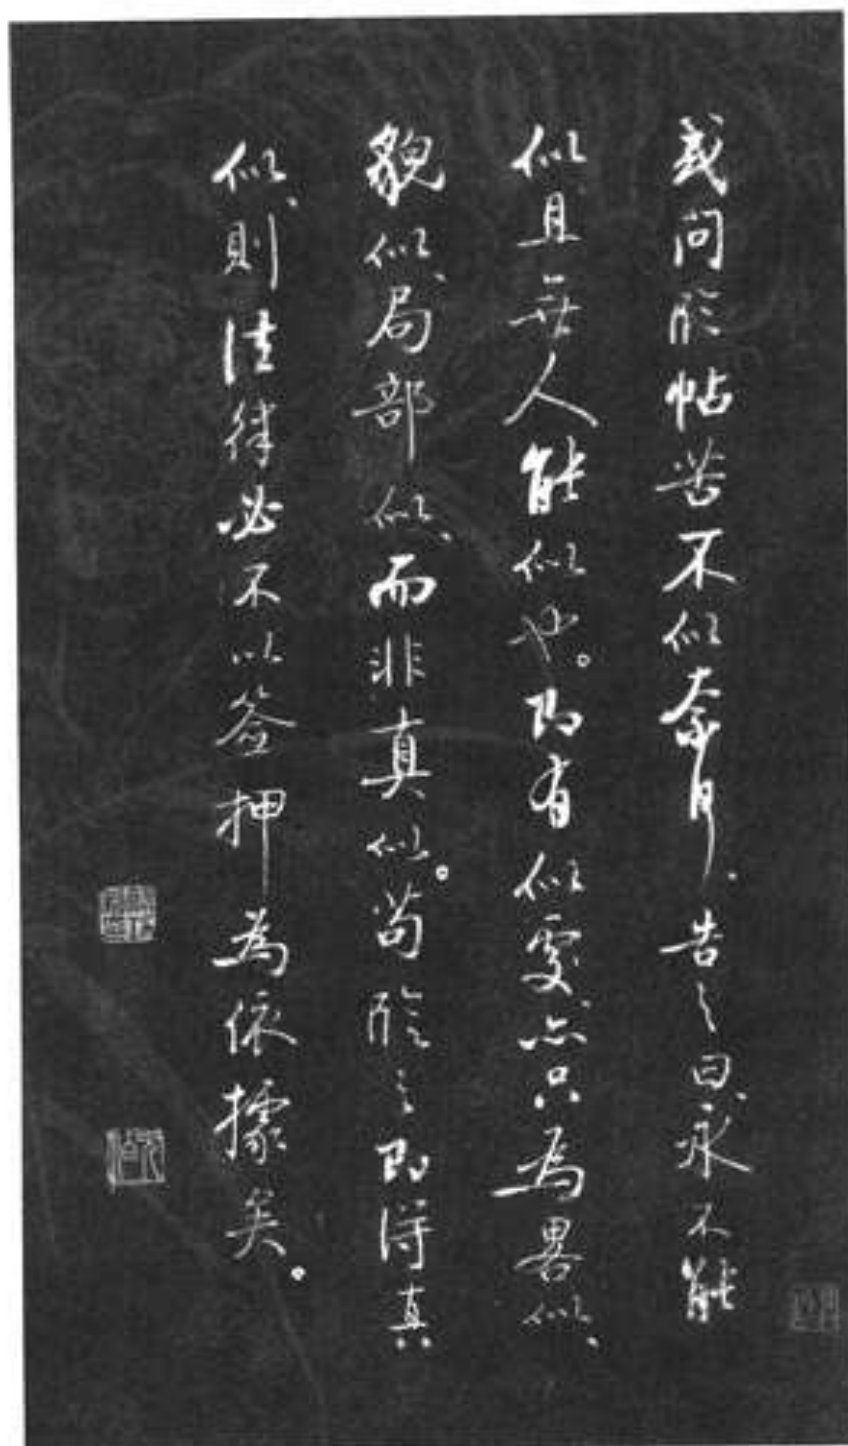 或问临帖苦不似奈何、告之曰、永不能
似、且无人能似也。即有似处、亦只为畧似、
貌似、局部似、而非真似。苟临之即得真
似、则法律必不以签押为依据矣。